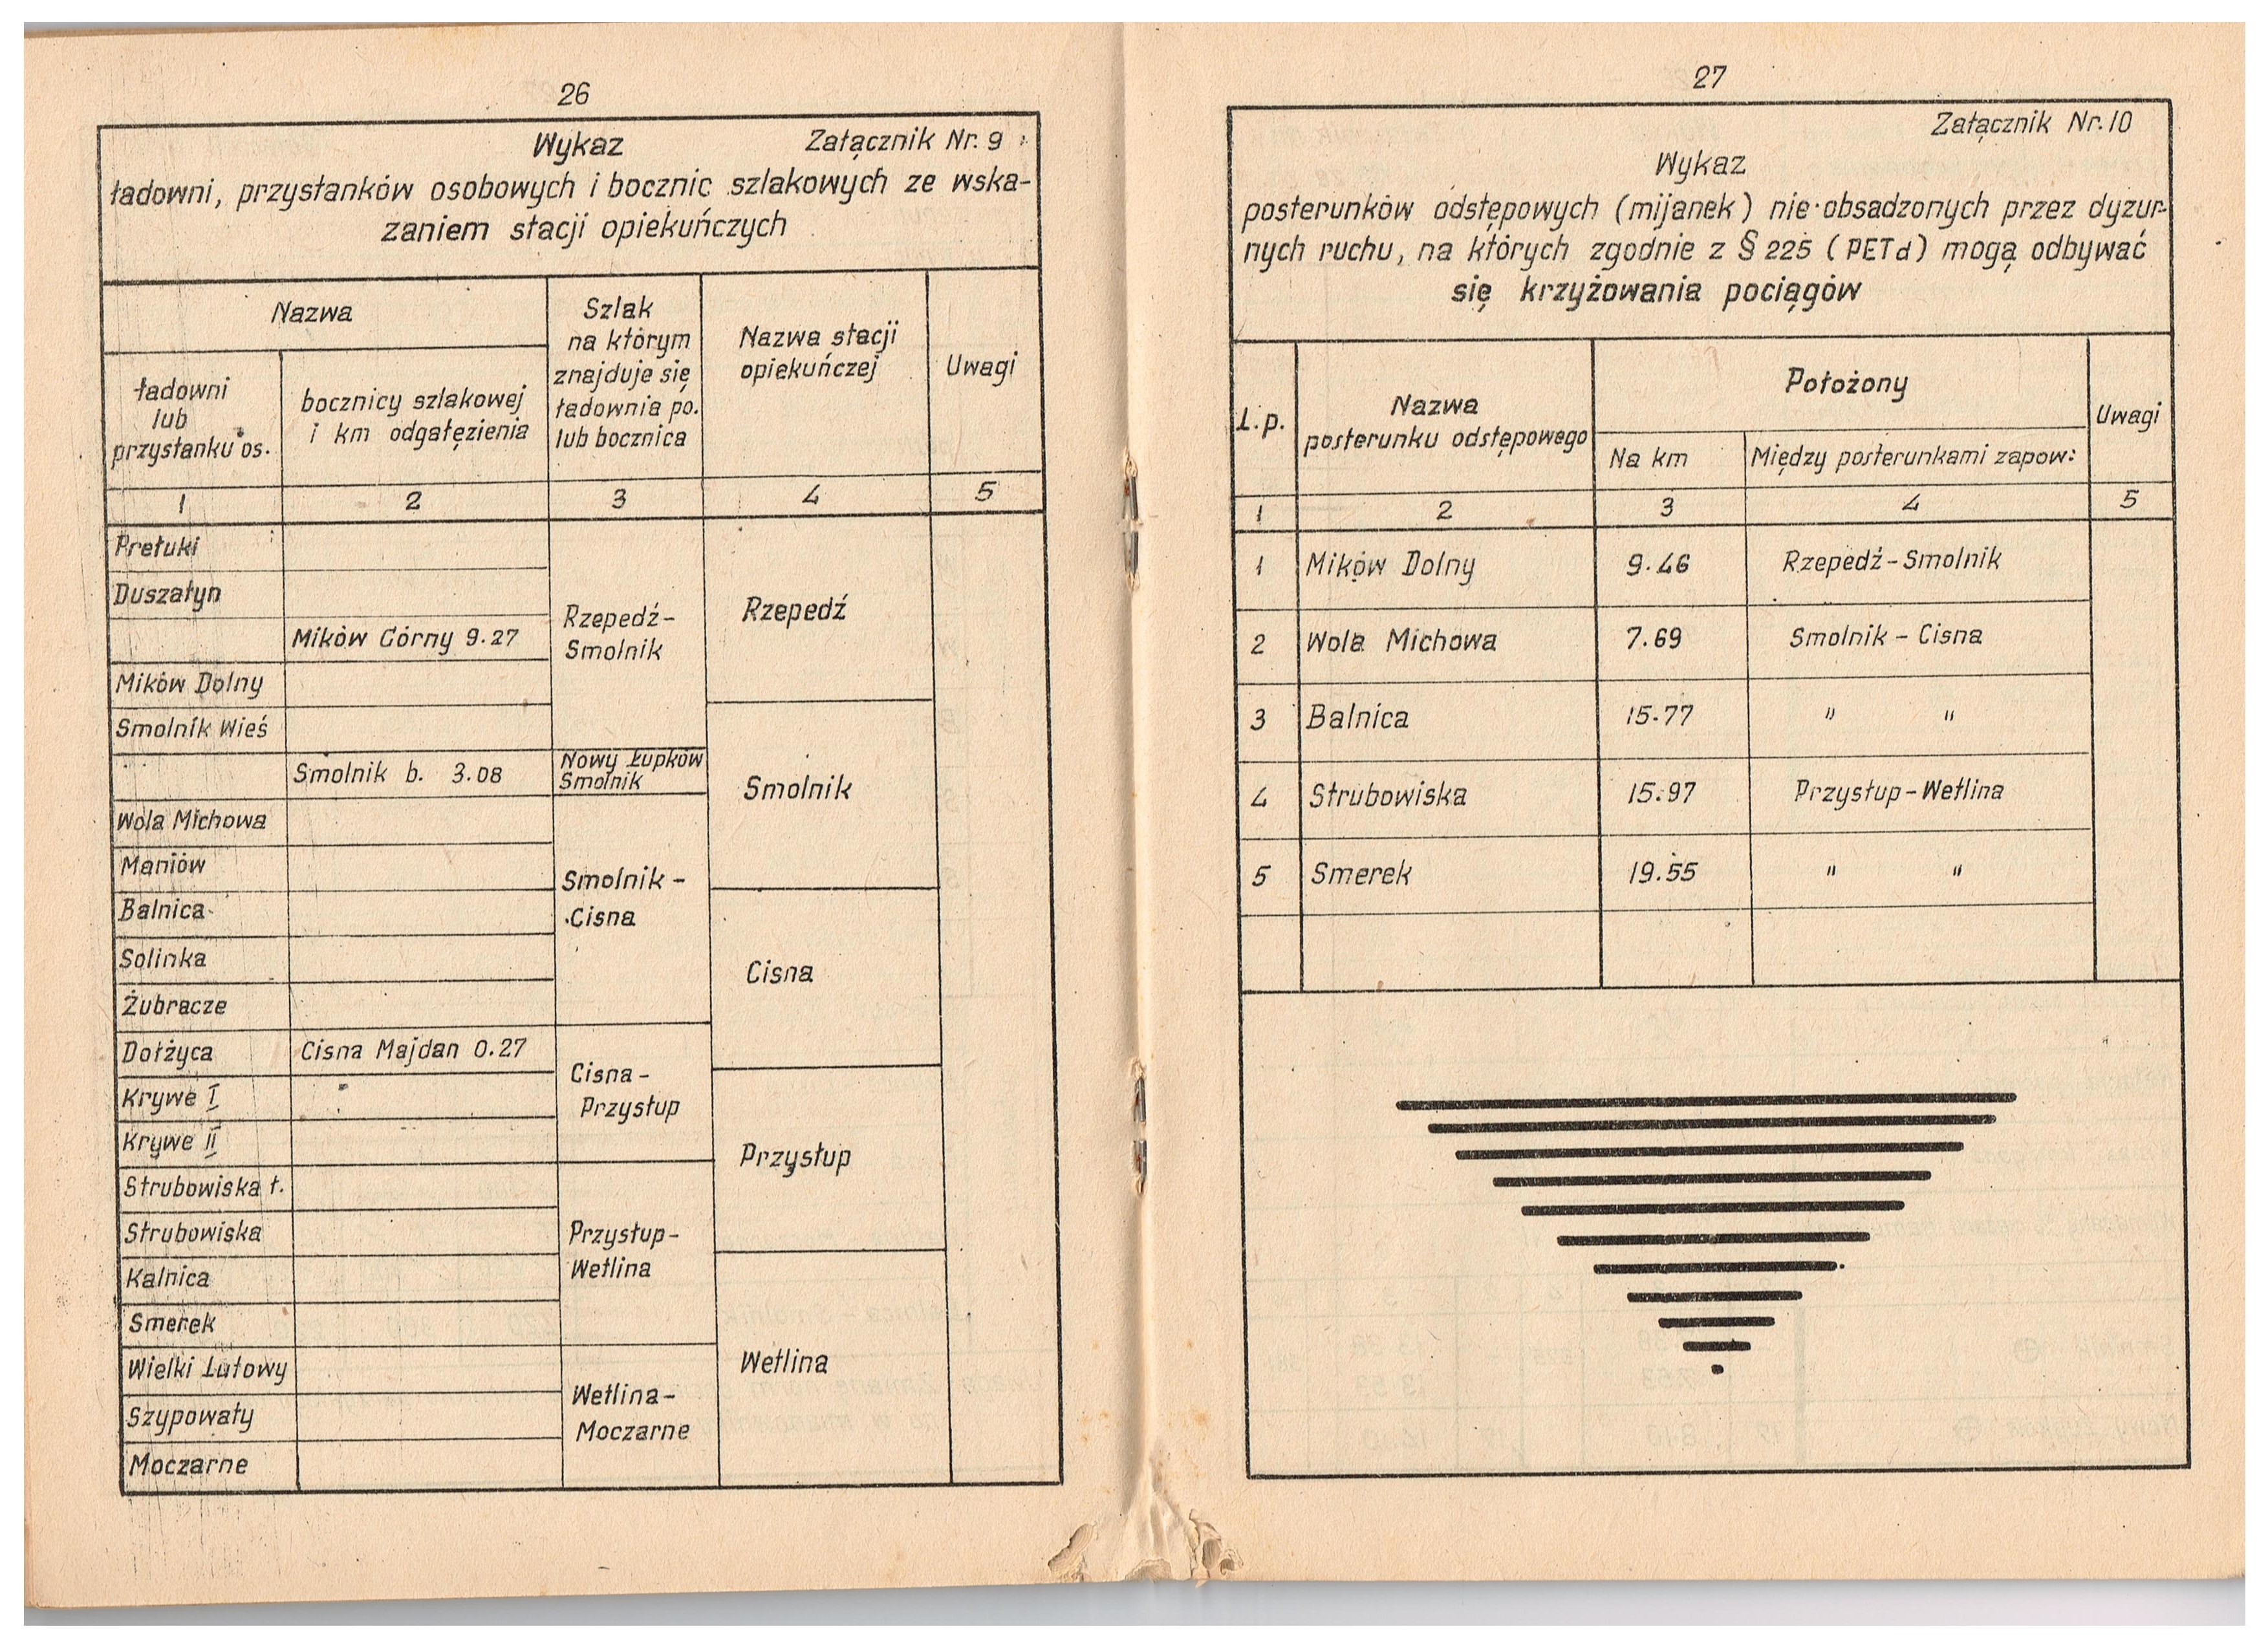 26
Wykaz Załącznik Nr. 9
ładowni, przystanków osobowych i bocznic szlakowych ze wska-
zaniem stacji opiekuńczych
Nazwa
ładowni
lub
przystanku os.
bocznicy szlakowej
i km odgałęzienia
Szlak
na którym
znajduje się
ładownia po.
lub bocznica
Nazwa stacji
opiekuńczej
Uwagi
1 2 3 4 5
Prełuki
Duszatyn
Mików Górny 9.27
Mików Dolny
Smolnik Wieś
Rzepedź-
Smolnik
Rzepedź
Smolnik b. 3.08
Nowy Łupków
Smolnik
Smolnik
Wola Michowa
Maniów
Balnica
Solinka
Żubracze
Smolnik -
Cisna
Cisna
Dołżyca Cisna Majdan 0.27
Krywe I
Krywe II
Cisna -
Przysłup
Przysłup
Strubowiska ł.
Strubowiska
Kalnica
Smerek
Przysłup-
Wetlina
Wetlina
Wielki Lutowy
Szypowaty
Moczarne
Wetlina-
Moczarne
27
Załącznik Nr. 10
Wykaz
posterunków odstępowych (mijanek) nie obsadzonych przez dyzur-
nych ruchu, na których zgodnie z § 225 (PETd) mogą odbywać
się krzyżowania pociągów
L.p.
Nazwa
posterunku odstępowego
Położony
Na km
Między posterunkami zapow:
Uwagi
1 2 3 4 5
1 Mików Dolny 9.46 Rzepedź-Smolnik
2 Wola Michowa 7.69 Smolnik - Cisna
3 Balnica 15.77 " "
4 Strubowiska 15.97 Przysłup-Wetlina
5 Smerek 19.55 " "